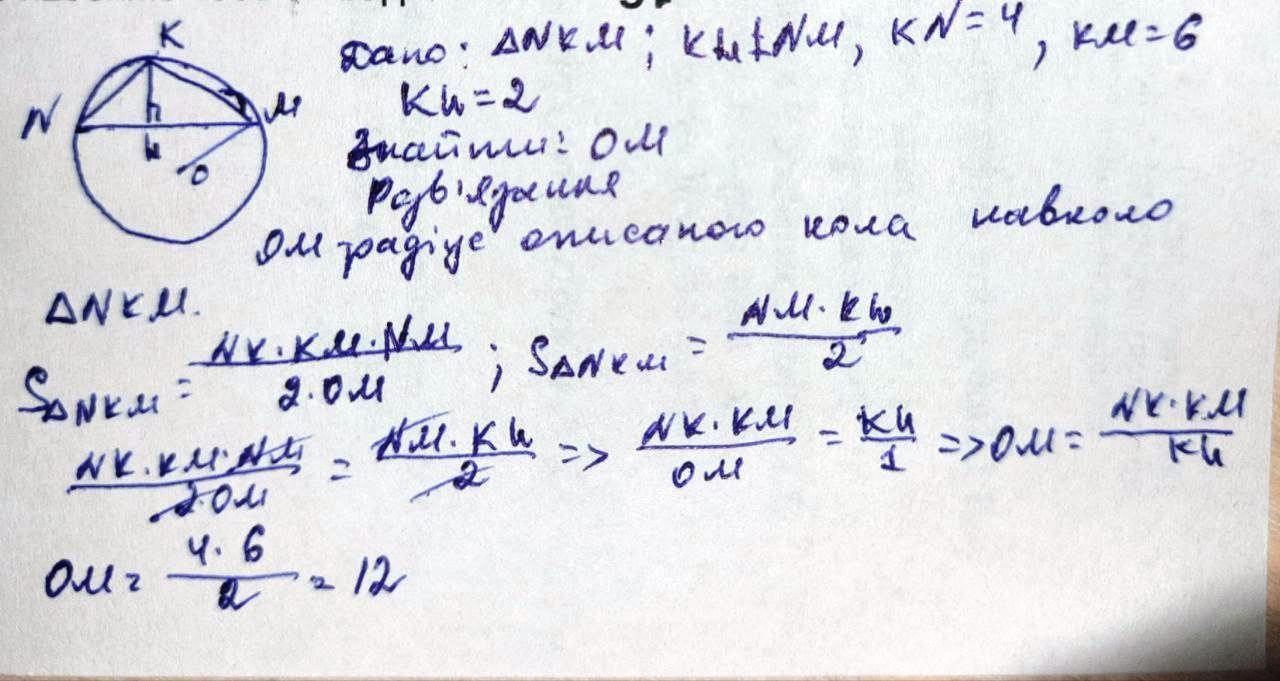 K
N
M
h
O
Дано: ΔNKM; Kh⊥NM, KN=4, KM=6
Kh=2
Знайти: OM
Розв'язання
OM радіус описаного кола навколо
ΔNKM.
SΔNKM = NK·KM·NM / 2·OM ; SΔNKM = NM·Kh / 2
NK·KM·NM / 2·OM = NM·Kh / 2 => NK·KM / OM = Kh / 1 => OM = NK·KM / Kh
OM = 4·6 / 2 = 12